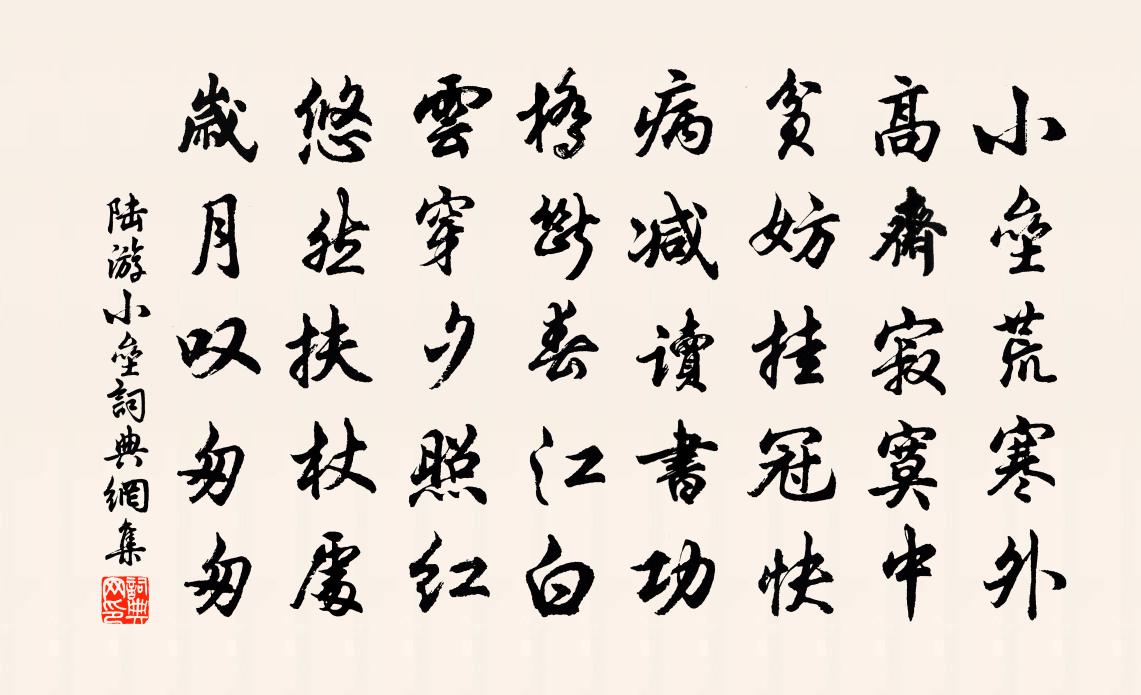 小壘荒寒外
高齋寂寞中
貧妨挂冠快
病減讀書功
橋斷春江白
雲穿夕照紅
悠然扶杖處
歲月叹匆匆
陆游小壘詞典網集
詞典網印